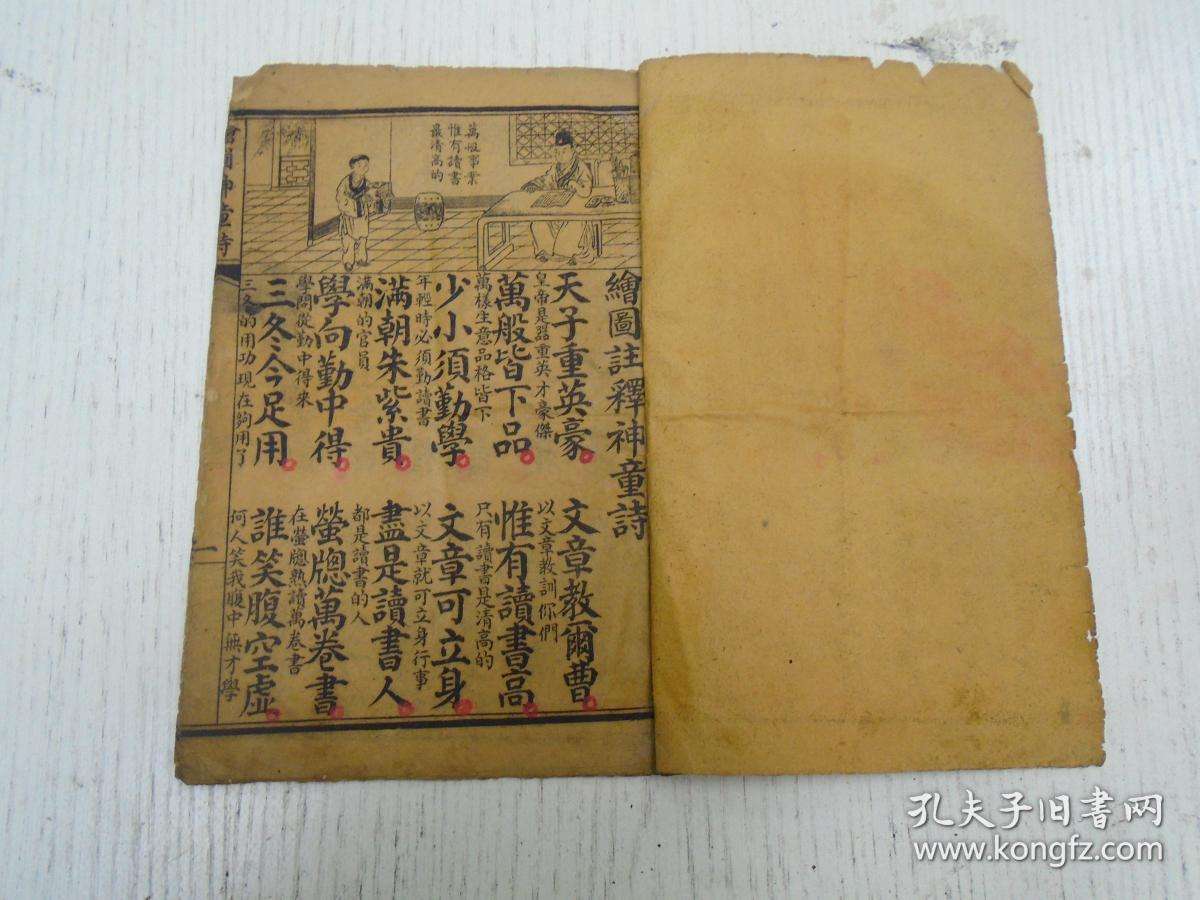 繪圖註釋神童詩
天子重英豪 文章教爾曹
皇帝是器重英才豪傑 以文章教訓你們
萬般皆下品 惟有讀書高
萬樣生意品格皆下 只有讀書是清高的
少小須勤學 文章可立身
年輕時必須勤讀書 以文章就可立身行事
满朝朱紫貴 盡是讀書人
满朝的官員 都是讀書的人
學向勤中得 螢牕萬卷書
學問從勤中得來 在螢牕熟讀萬卷書
三冬今足用 誰笑腹空虛
三冬的用功現在夠用了 何人笑我腹中無才學
萬般事業
惟有讀書
最清高的
繪圖神童詩
一
孔夫子旧书网
www.kongfz.com